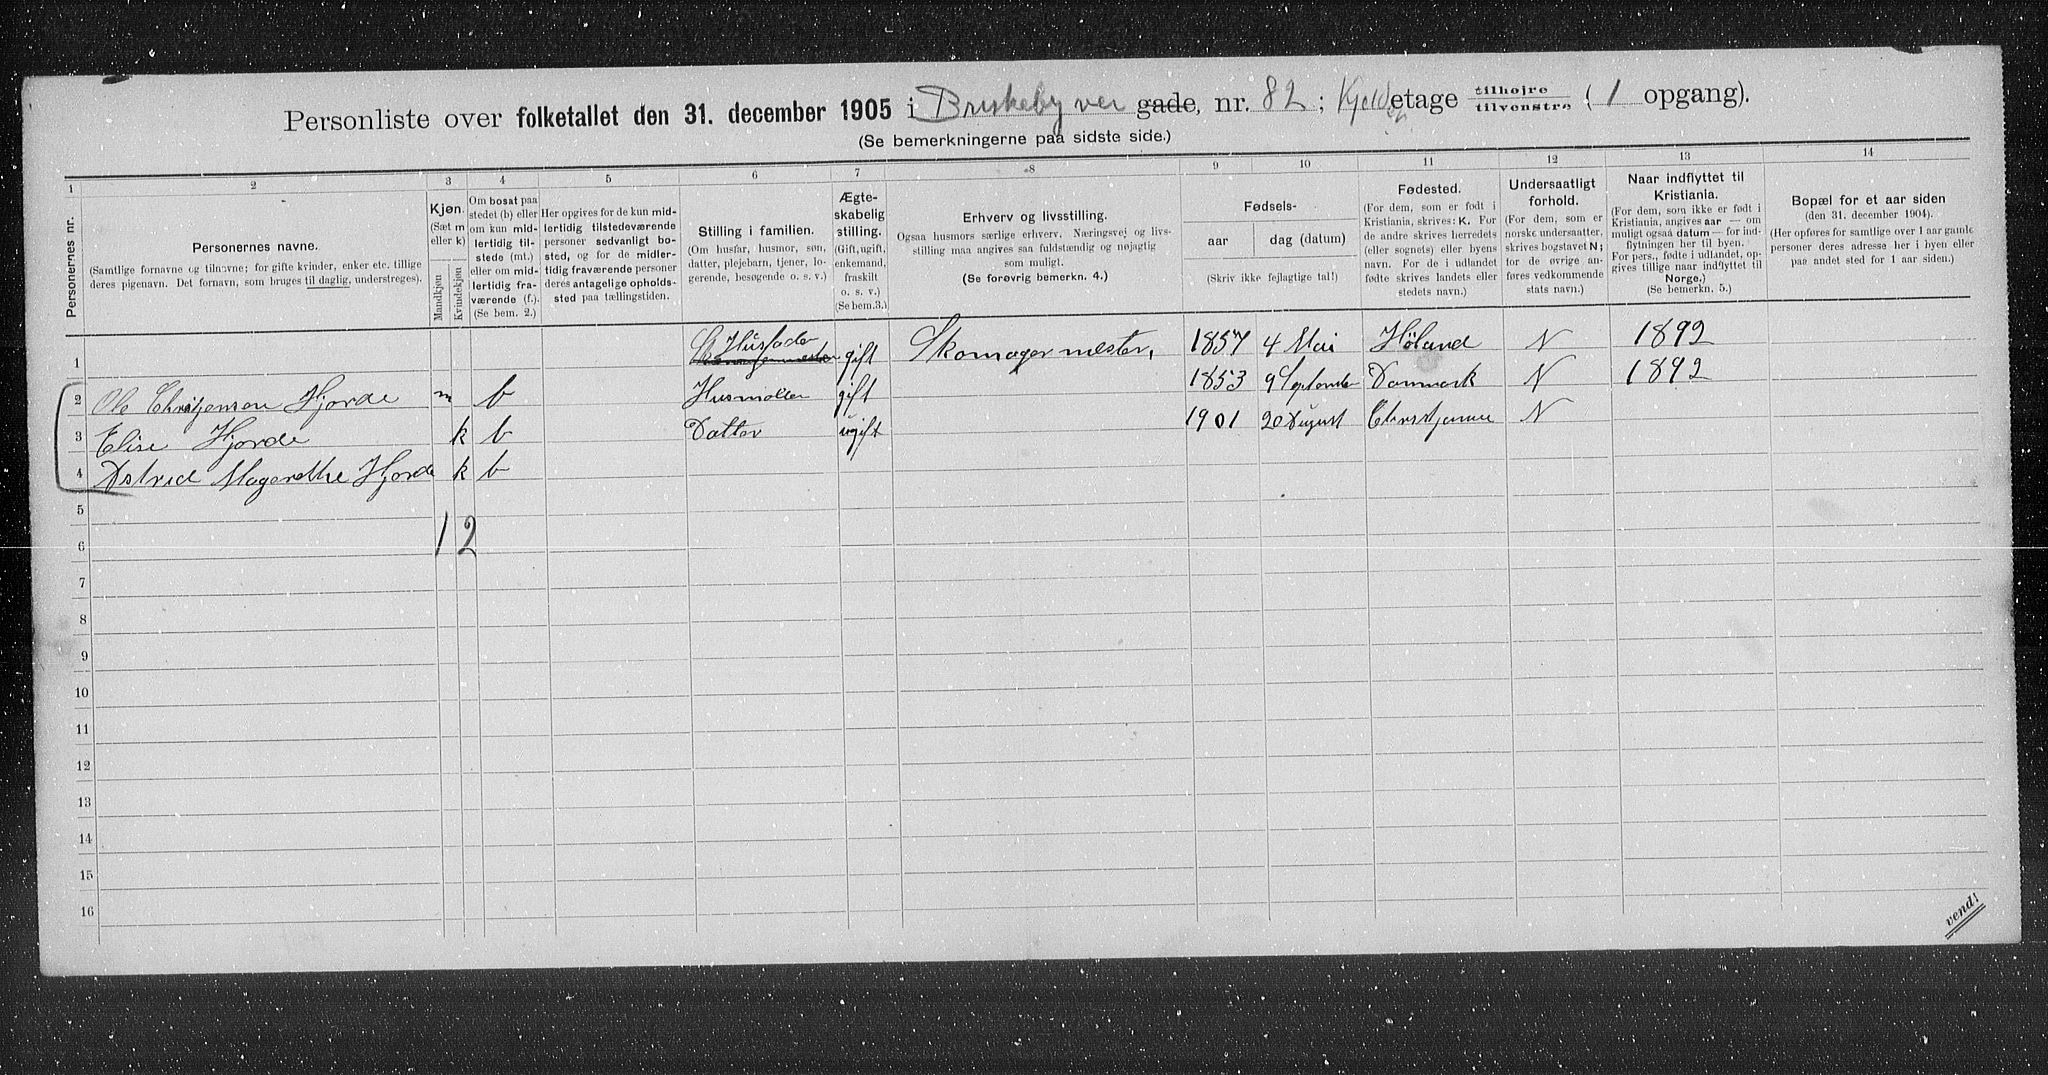 Personliste over folketallet den 31. december 1905 i Briskebyvei gade, nr. 82; Kjelderen etage tilhøjre tilvenstre (1 opgang).
(Se bemerkningerne paa sidste side.)
1 2 3 4 5 6 7 8 9 10 11 12 13 14
Personernes nr.
Personernes navne.
(Samtlige fornavne og tilnavne; for gifte kvinder, enker etc. tillige
deres pigenavn. Det fornavn, som bruges til daglig, understreges).
Kjøn.
(Sæt m
eller k)
Mandkjøn
Kvindekjøn
Om bosat paa
stedet (b) eller
om kun mid-
lertidig til-
stede (mt.)
eller om mid-
lertidig fra-
værende (f.).
(Se bem. 2.)
Her opgives for de kun mid-
lertidig tilstedeværende
personer sedvanligt bo-
sted, og for de midler-
tidig fraværende personer
deres antagelige opholds-
sted paa tællingstiden.
Stilling i familien.
(Om husfar, husmor, søn,
datter, plejebarn, tjener, lo-
gerende, besøgende o. s. v.)
Ægte-
skabelig
stilling.
(Gift, ugift,
enkemand,
fraskilt
o. s. v.)
(Se bem.3.)
Erhverv og livsstilling.
Ogsaa husmors særlige erhverv. Næringsvej og livs-
stilling maa angives saa fuldstændig og nøjagtig
som muligt.
(Se forøvrig bemerkn. 4.)
Fødsels-
aar dag (datum)
(Skriv ikke fejlagtige tal!)
Fødested.
(For dem, som er født i
Kristiania, skrives: K. For
de andre skrives herredets
(eller sognets) eller byens
navn. For de i udlandet
fødte skrives landets eller
stedets navn.)
Undersaatligt
forhold.
(For dem, som er
norske undersaatter,
skrives bogstavet N;
for de øvrige an-
føres vedkommende
stats navn.)
Naar indflyttet til
Kristiania.
(For dem, som ikke er født i
Kristiania, angives aar — om
muligt ogsaa datum — for ind-
flytningen her til byen.
For pers., fødte i udlandet, op-
gives tillige naar indflyttet til
Norge.)
(Se bemerkn. 5.)
Bopæl for et aar siden
(den 31. december 1904).
(Her opføres for samtlige over 1 aar gamle
personer deres adresse her i byen eller
paa andet sted for 1 aar siden.)
1 Husfader gift Skomagermester, 1857 4 Mai Høland N 1892
2 Ole Christjensen Hjorde m b Husmoder gift 1853 9 September Danmark N 1892
3 Elise Hjorde k b Datter ugift 1901 20 August Christjania N
4 Astrid Magarethe Hjorde k b
5
1 2
6
7
8
9
10
11
12
13
14
15
16
vend!